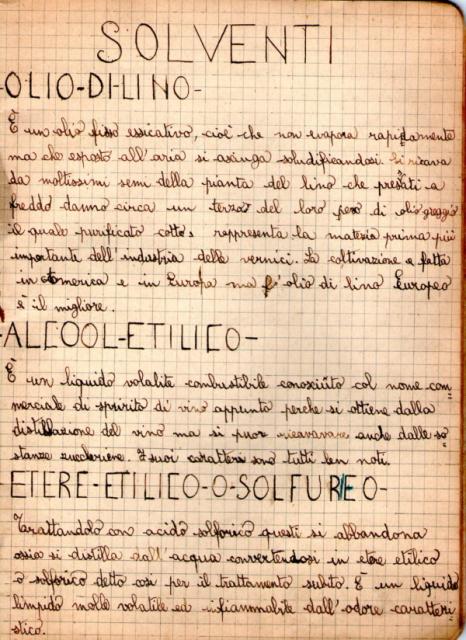 SOLVENTI
-OLIO-DI-LINO-
È un olio fisso essicativo, cioè che non evapora rapidamente
ma che esposto all'aria si asciuga soludificandosi. Si ricava
da moltissimi semi della pianta del lino che pressati a
freddo danno circa un terzo del loro peso di olio greggio
il quale purificato cotto, rappresenta la materia prima più
importante dell'industria delle vernici. La coltivazione è fatta
in America e in Europa ma l'olio di lino Europeo
è il migliore.
-ALCOOL-ETILICO-
È un liquido volatite combustibile conosciuto col nome com=
merciale di spirito di vino appunto perche si ottiene dalla
distillazione del vino ma si puoi ricavavare anche dalle so=
stanze zuccherine. I suoi caratteri sono tutti ben noti.
ETERE-ETILICO-O-SOLFUREO-
Tarattandolo con acido solforico questi si abbandona
ossia si distilla dall'acqua convertendosi in etere etilico
o solforico detto cosi per il trattamento subito. È un liquido
limpido molle volatile ed infiammabite dall'odore caratteri=
stico.